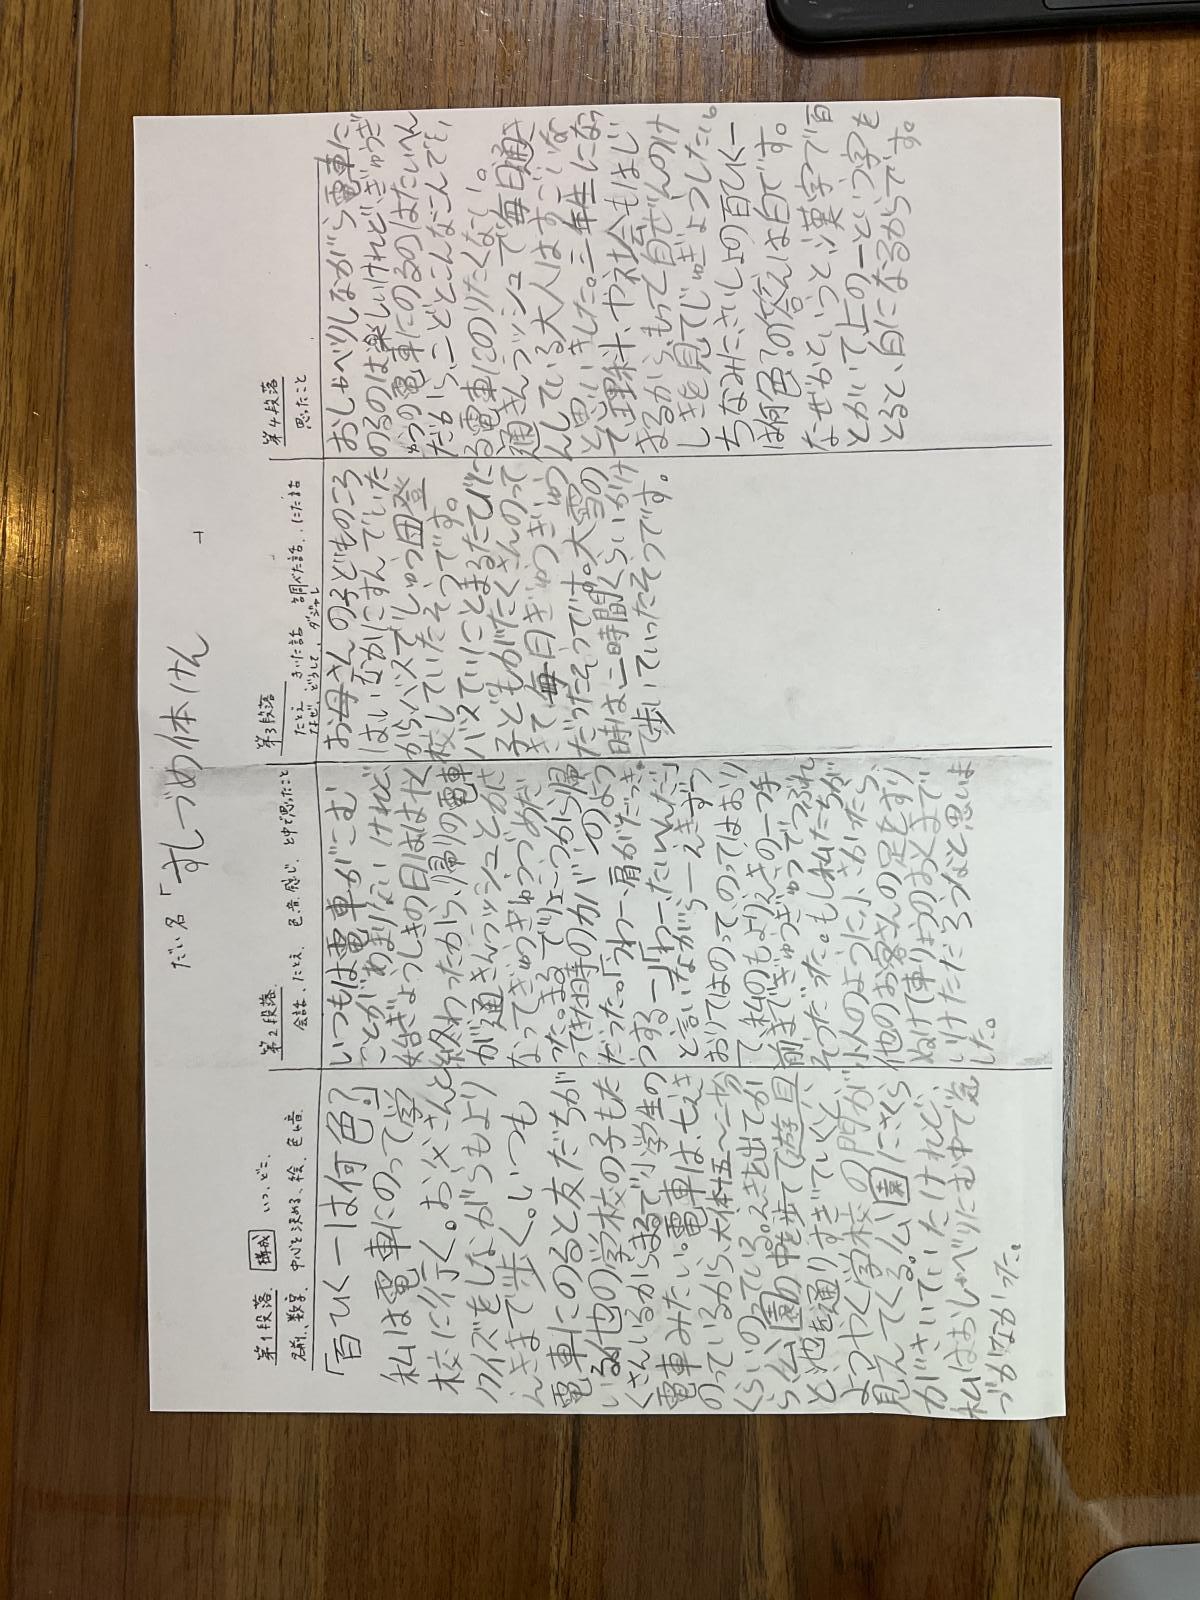 だい名「すしづめ体けん
第1段落 構成 いつ、どこ、
名前、数字、中心を決める、絵、色、音
「百ひく一は何色?」
私は電車にのって学
校に行く。お父さんと
クイズをしながらもより
えきまで歩く。いつも
電車にのると友だちが
いる他の学校の子もた
くさんいるからまるで小学生の
電車みたい。電車は、七えき
のっているから、大体十五〜二十分
くらいのっている。えきを出てか
ら公園の中を歩って遊具
と池を通りすぎていくと、
ようやく学校の門が
見えてくる。公園にさくら
がさいていたけれど、
私はおしゃべりにむ中で気
づかなかった。
第2段落
会話、たとえ、色、音、感じ、と中で思ったこと
いつもは電車がこむ
ことがあまりないけれど、
始ぎょうしきの日ははやく
終わったから、帰りの電車
が通きんラッシュとかさ
なってぎゅうぎゅうづめだ
った。まるでりょこうから帰
ってきた時のカバンのよう
だった。「うわー、肩がだっき
ゅうするー」「わー、たいへんだ」
と言いながら一えきずつ
おりてはのって、のってはおり
て、私のもよりえきの一つ手
前までぎゅうぎゅうでつぶれ
そうだった。もし私たちが
小人のように小さかったら、
他のお客さんの足をすり
ぬけて車りょうのおくまで
いけただろうなと思いま
した。
第3段落
たとえ きいた話 調べた話、にた話
なぜ、どうして、 ダジャレ
お母さんの子どものころ
はいなかにすんでいた
から、バスでしゅう団登
校していたそうです。
バスていにとまるたびに
子どもがたくさんのって
きて毎日ぎゅうぎゅう
だったそうです。大雪の
時は、二時間くらいかけ
て歩いていったそうです。
第4段落
思ったこと
おしゃべりしながら電車に
のるのは楽しいけれどぎゅうぎ
ゅうの電車にのるのはたいへん
だから、二どとこんなにこんでい
る電車にのりたくなーい。
通きんラッシュで毎日通き
んしている大人はすごいな
と思いました。三年生になっ
て理科、や社会もはじ
まるから、もっと自ぜんのけ
しきを見てじゅぎょうしたい。
ちなみに、さいしょの百ひく一
は何色?の答えは白です。
なぜかというと、漢字で百
とかいて上の一という字を
とると、白になるからです。